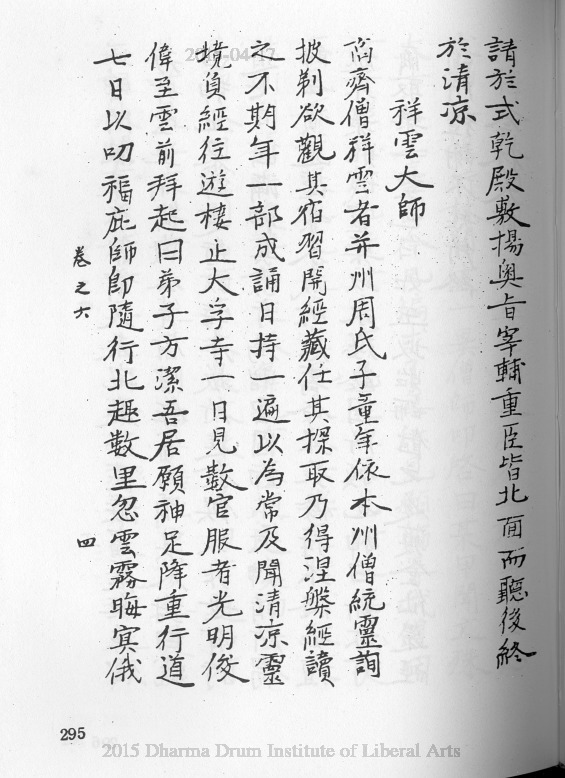 請於式乾殿敷揚奧旨宰輔重臣皆北面而聽後終
於清凉
祥雲大師
高齊僧祥雲者并州周氏子童年依本州僧統靈詢
披剃欲觀其宿習開經藏任其探取乃得涅槃經讀
之不期年一部成誦日持一遍以為常及聞清凉靈
境負經往遊棲止大孚寺一日見數官服者光明俊
偉至雲前拜起曰弟子方潔吾居願神足降重行道
七日以叨福庇師即隨行北趣數里忽雲霧晦寞俄
卷之六
四
295
2015-04-17
2015 Dharma Drum Institute of Liberal Arts